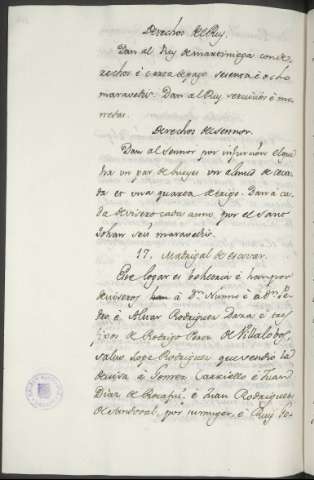 Derechos del Rey.
Dan al Rey de martiniega con de-
rechos é carta de pago sesenta é ocho
maravedis. Dan al Rey servicios é mo-
nedas.
Derechos de Sennor.
Dan al sennor por infurcion el que
ha un par de bueyes un almud de ceva-
da et una quarta de trigo. Dan a ca-
da devisero cada anno por el Sant
Johan seis maravedis.
17. Madrigal de escovar.
Este logar es behetria é han por
deviseros á Dn. Nunno é a Dn. Pe-
dro é Alvar Rodriguez Daza é los
fijos de Rodrigo Perez de Villalobos,
salvo Lope Rodriguez que vendió la
devisa á Gomez Carriello é Juan
Diaz de Rocafui é Juan Rodriguez
de Sandoval, por su muger, é Ruy